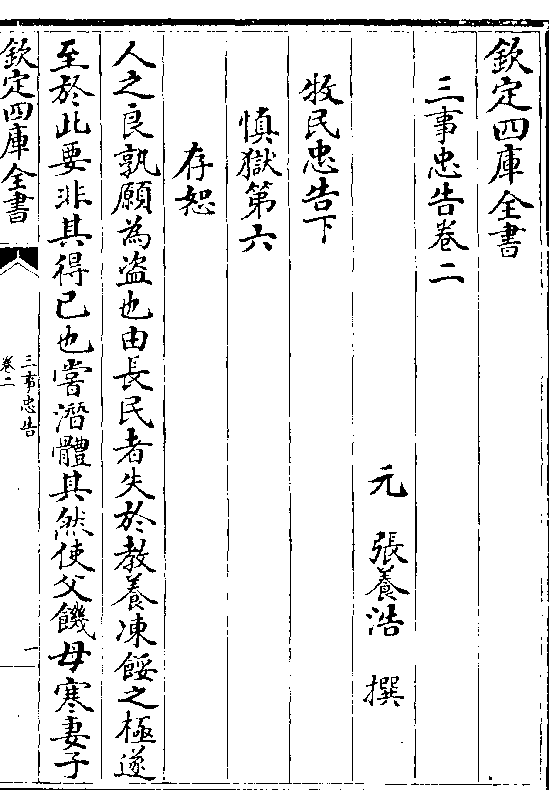 欽定四庫全書
三事忠告卷二
元 張養浩 撰
牧民忠告下
慎獄第六
存恕
人之良孰願為盗也由長民者失於教養凍餒之極遂
至於此要非其得已也嘗潛體其然使父饑母寒妻子
欽定四庫全書
三事忠告
卷二
一